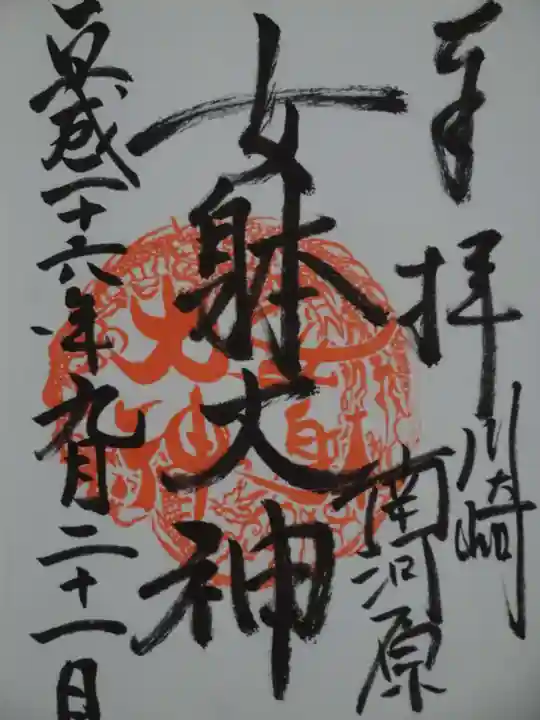 奉拝
川崎
南河原
女躰大神
平成二十六年九月二十一日
女躰
大神